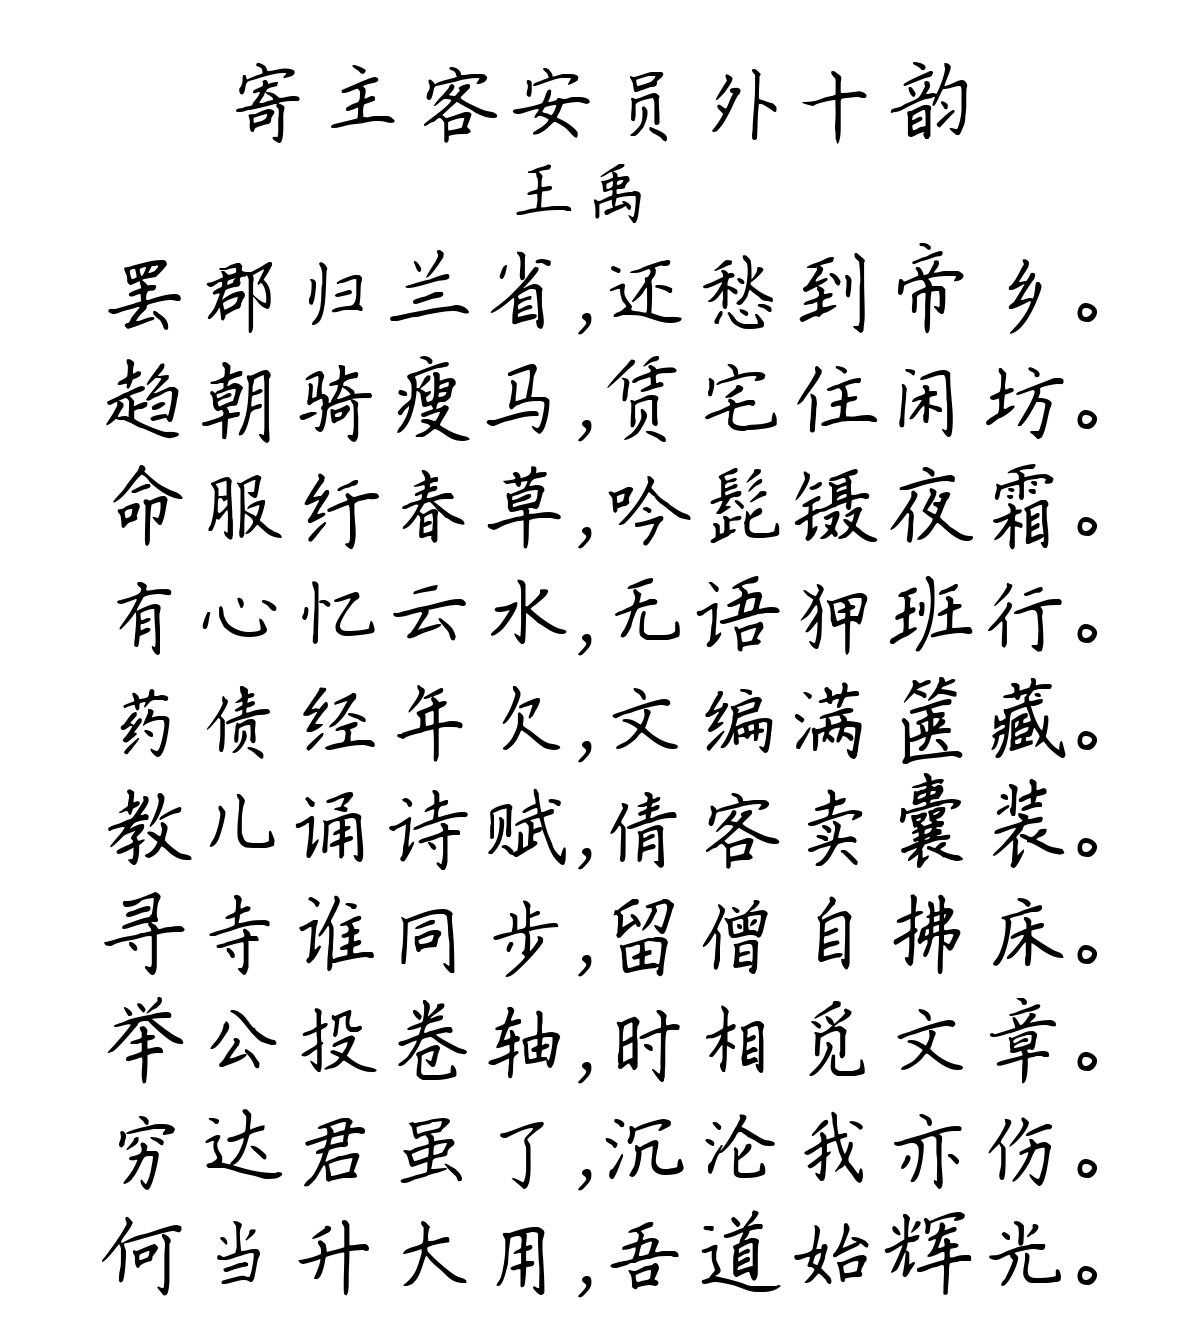 寄主客安员外十韵
王禹
罢郡归兰省,还愁到帝乡。
趋朝骑瘦马,赁宅住闲坊。
命服纡春草,吟髭镊夜霜。
有心忆云水,无语狎班行。
药债经年欠,文编满箧藏。
教儿诵诗赋,倩客卖囊装。
寻寺谁同步,留僧自拂床。
举公投卷轴,时相觅文章。
穷达君虽了,沉沦我亦伤。
何当升大用,吾道始辉光。